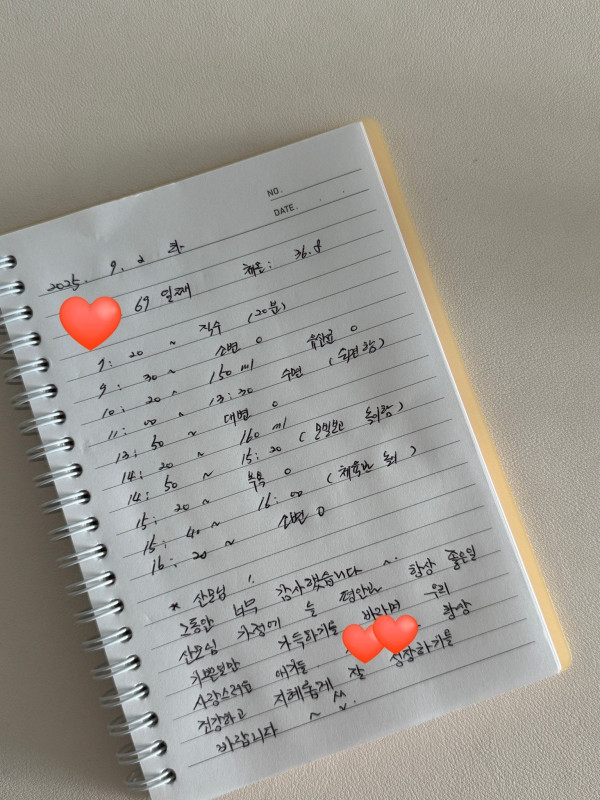 NO.
DATE. . .
2025. 9. 2 화
69 일째 체온: 36.8
9: 20 ~ 직수 (20분)
9: 30 ~ 소변 0 유산균 0
10: 20 ~ 150 ml
11: 00 ~ 13:30 수면
13: 50 ~ 대변 0
14: 20 ~ 160 ml
14: 50 ~ 15:20 (모빌보고 놀이함)
15: 20 ~ 목욕 0
15: 40 ~ 16:00 (체육관 놀이)
16: 20 ~ 소변 0
* 산모님 !
그동안 너무 감사했습니다 ~
산모님 가정에 늘 평안과 항상 좋은일
기쁜일만 가득하기를 바라며 우리
사랑스러운 애기들 항상
건강하고 지혜롭게 잘 성장하기를
바랍니다 ~